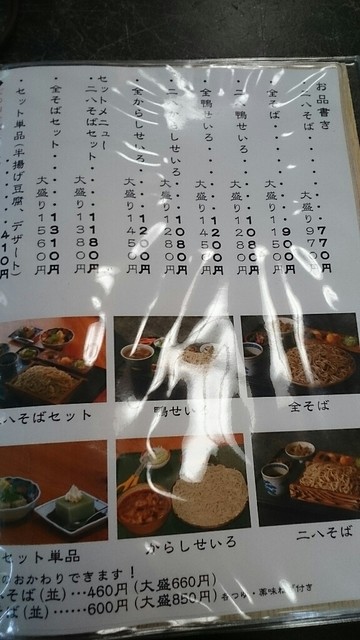 お品書き
・二八そば・・・・７７０円
大盛り９７０円
・全そば・・・・９００円
大盛り
・二八鴨せいろ・・・１０８０円
大盛り１２８０円
・全鴨せいろ・・・１２００円
大盛り１４５０円
・二八からしせいろ・・１０８０円
大盛り１２８０円
・全からしせいろ・・・１２００円
大盛り１４５０円
セットメニュー
・二八そばセット・・・１１８０円
大盛り１３８０円
・全そばセット・・・１３１０円
大盛り１５６０円
・セット単品(半揚げ豆腐、デザート)
４１０円
全そば
鴨せいろ
八そばセット
二八そば
からしせいろ
セット単品
のおかわりできます！
そば(並)…460円(大盛660円)
ば(並)……600円(大盛850円)